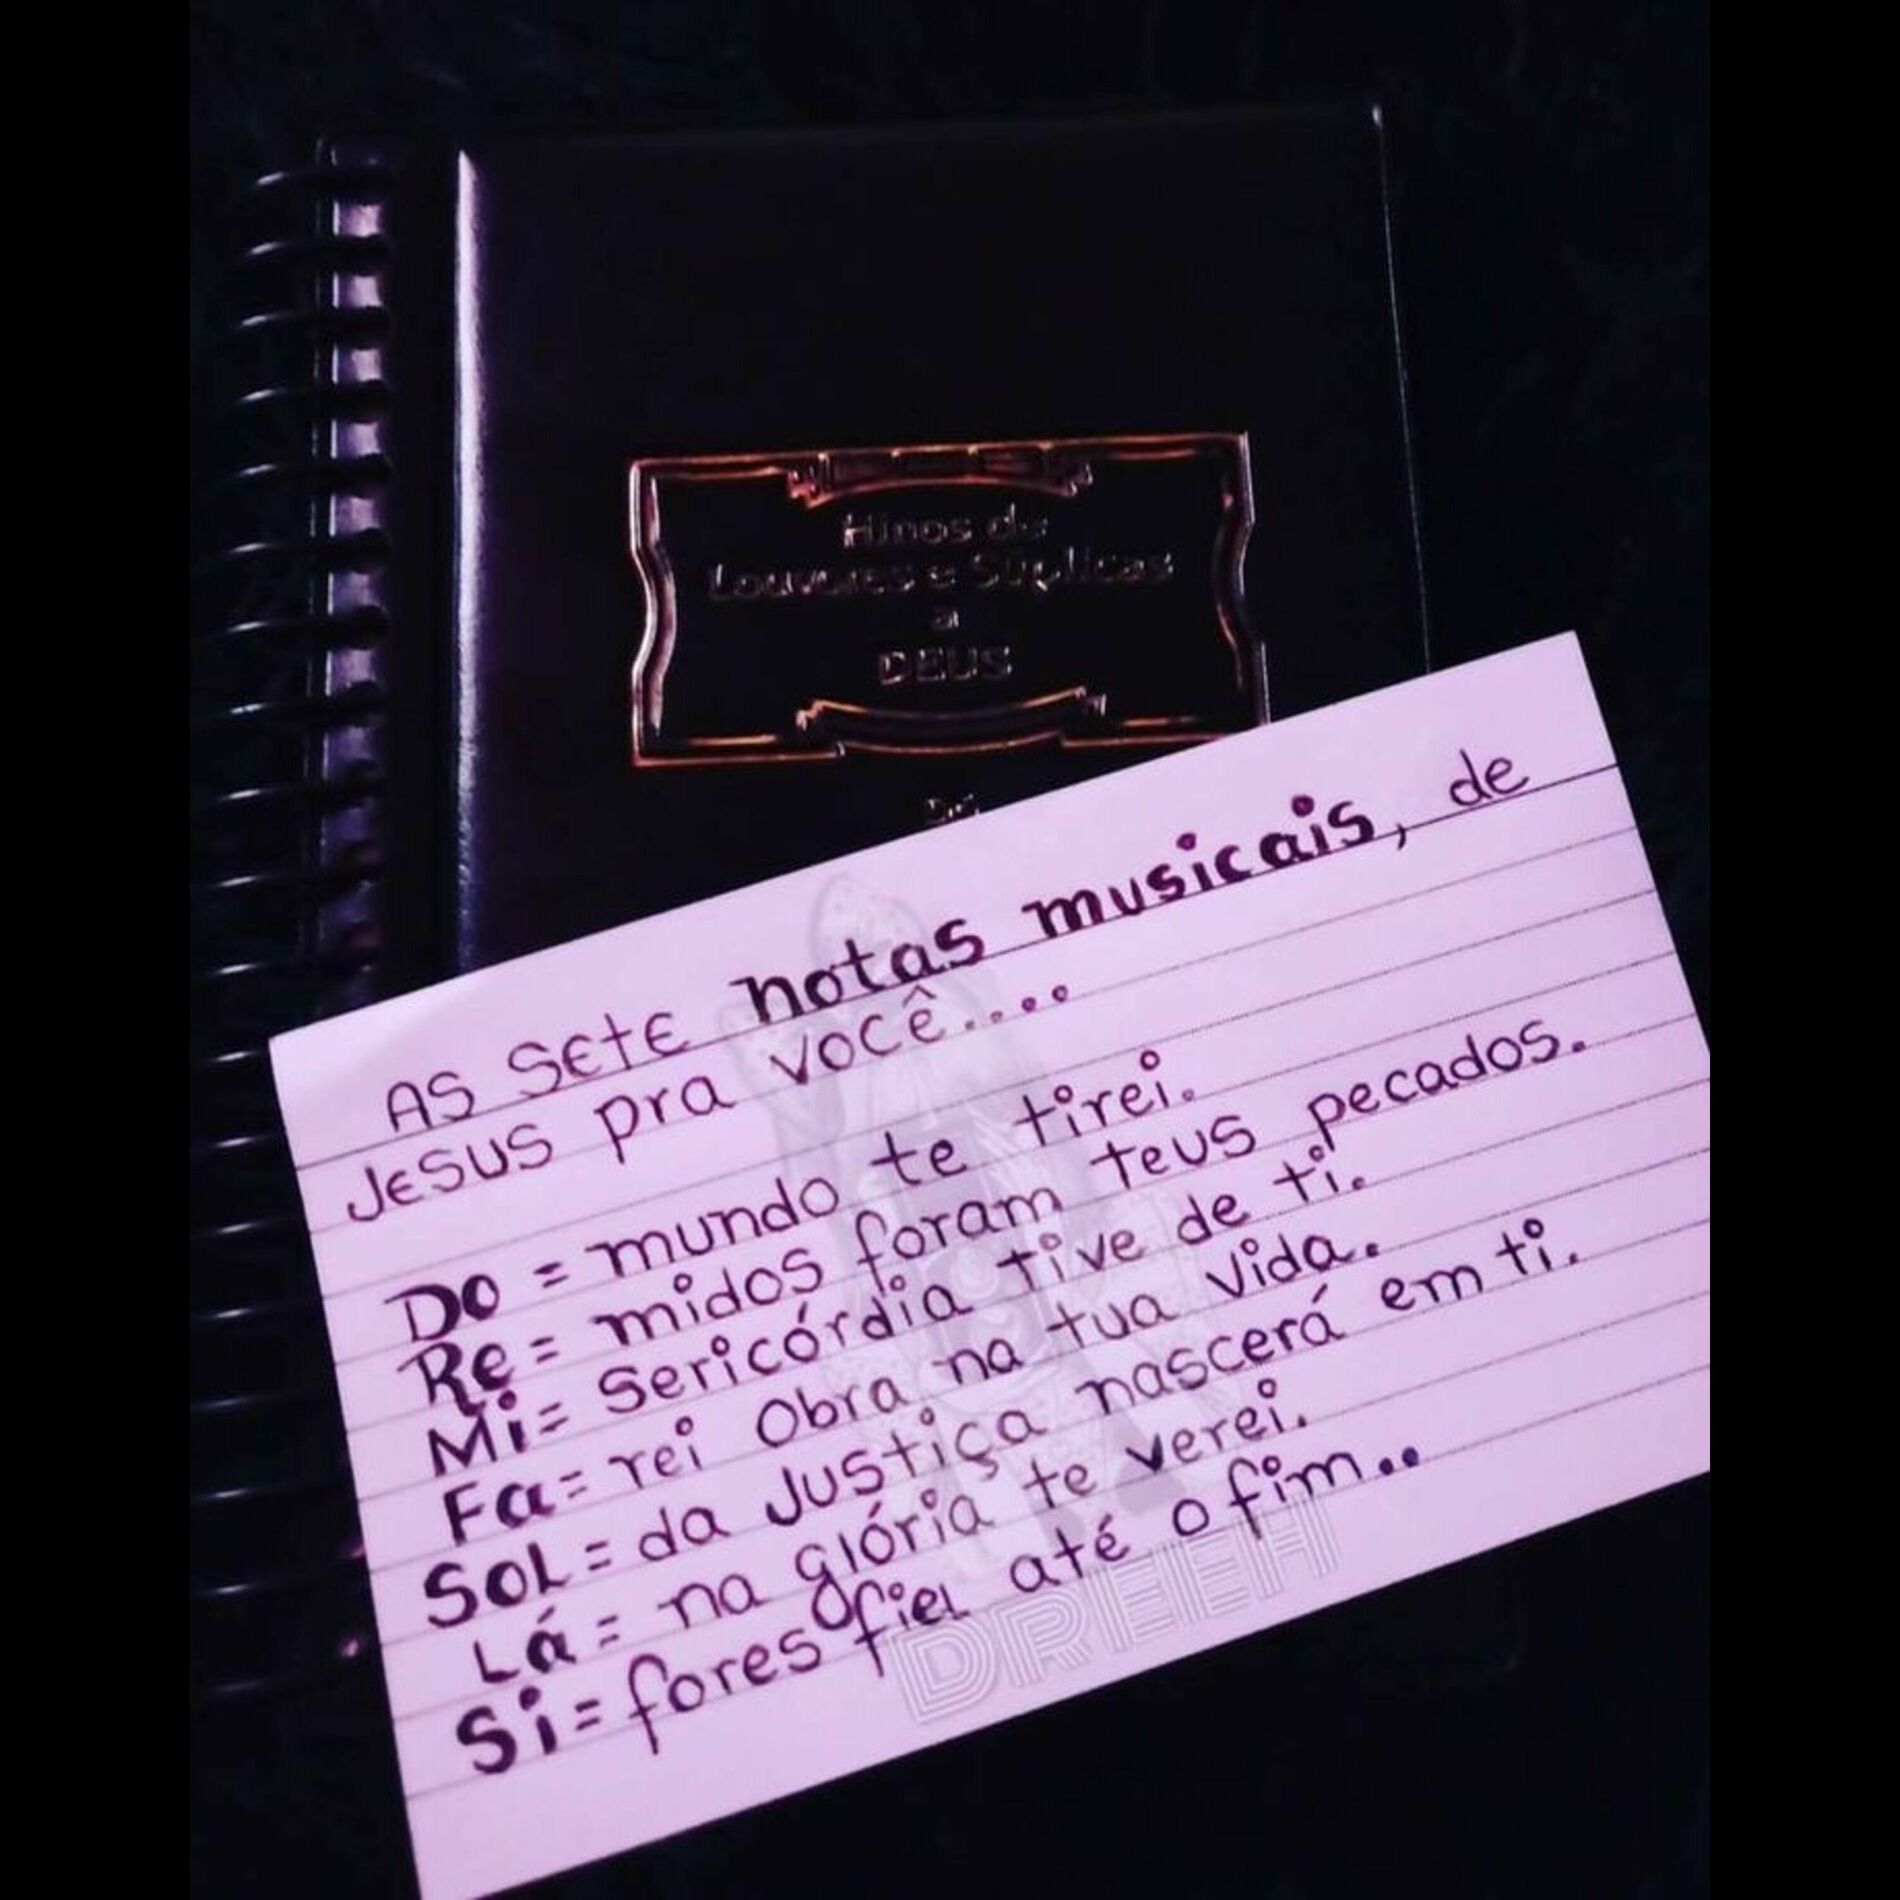 Hinos de
Louvores e Súplicas
a
DEUS
AS SETE notas musicais, de
JESUS pra você....
Do = mundo te tirei.
Re = midos foram teus pecados.
Mi = Sericórdia tive de ti.
Fa = rei Obra na tua vida.
SOL = da Justiça nascerá em ti.
Lá = na glória te verei.
Si = fores fiel até o fim..
DREEH